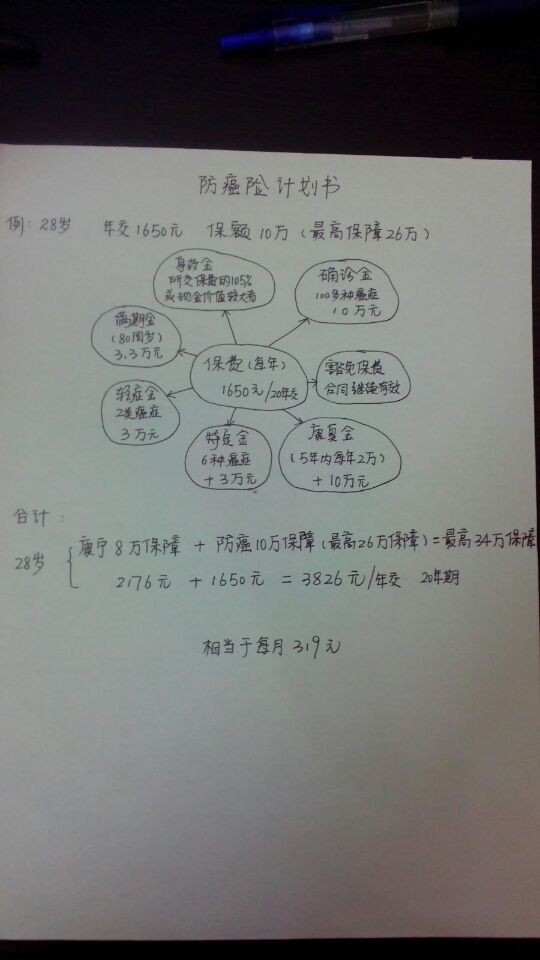 防癌险计划书
例：28岁 年交1650元 保额10万（最高保障26万）
身故金
所交保费的105%
或现金价值较大者
确诊金
100多种癌症
10万元
满期金
（80周岁）
3.3万元
保费（每年）
1650元/20年交
豁免保费
合同继续有效
轻症金
2类癌症
3万元
特定金
6种癌症
+3万元
康复金
（5年内每年2万）
+10万元
合计：
28岁
康宁8万保障 + 防癌10万保障（最高26万保障）=最高34万保障
2176元 + 1650元 = 3826元/年交 20年期
相当于每月319元